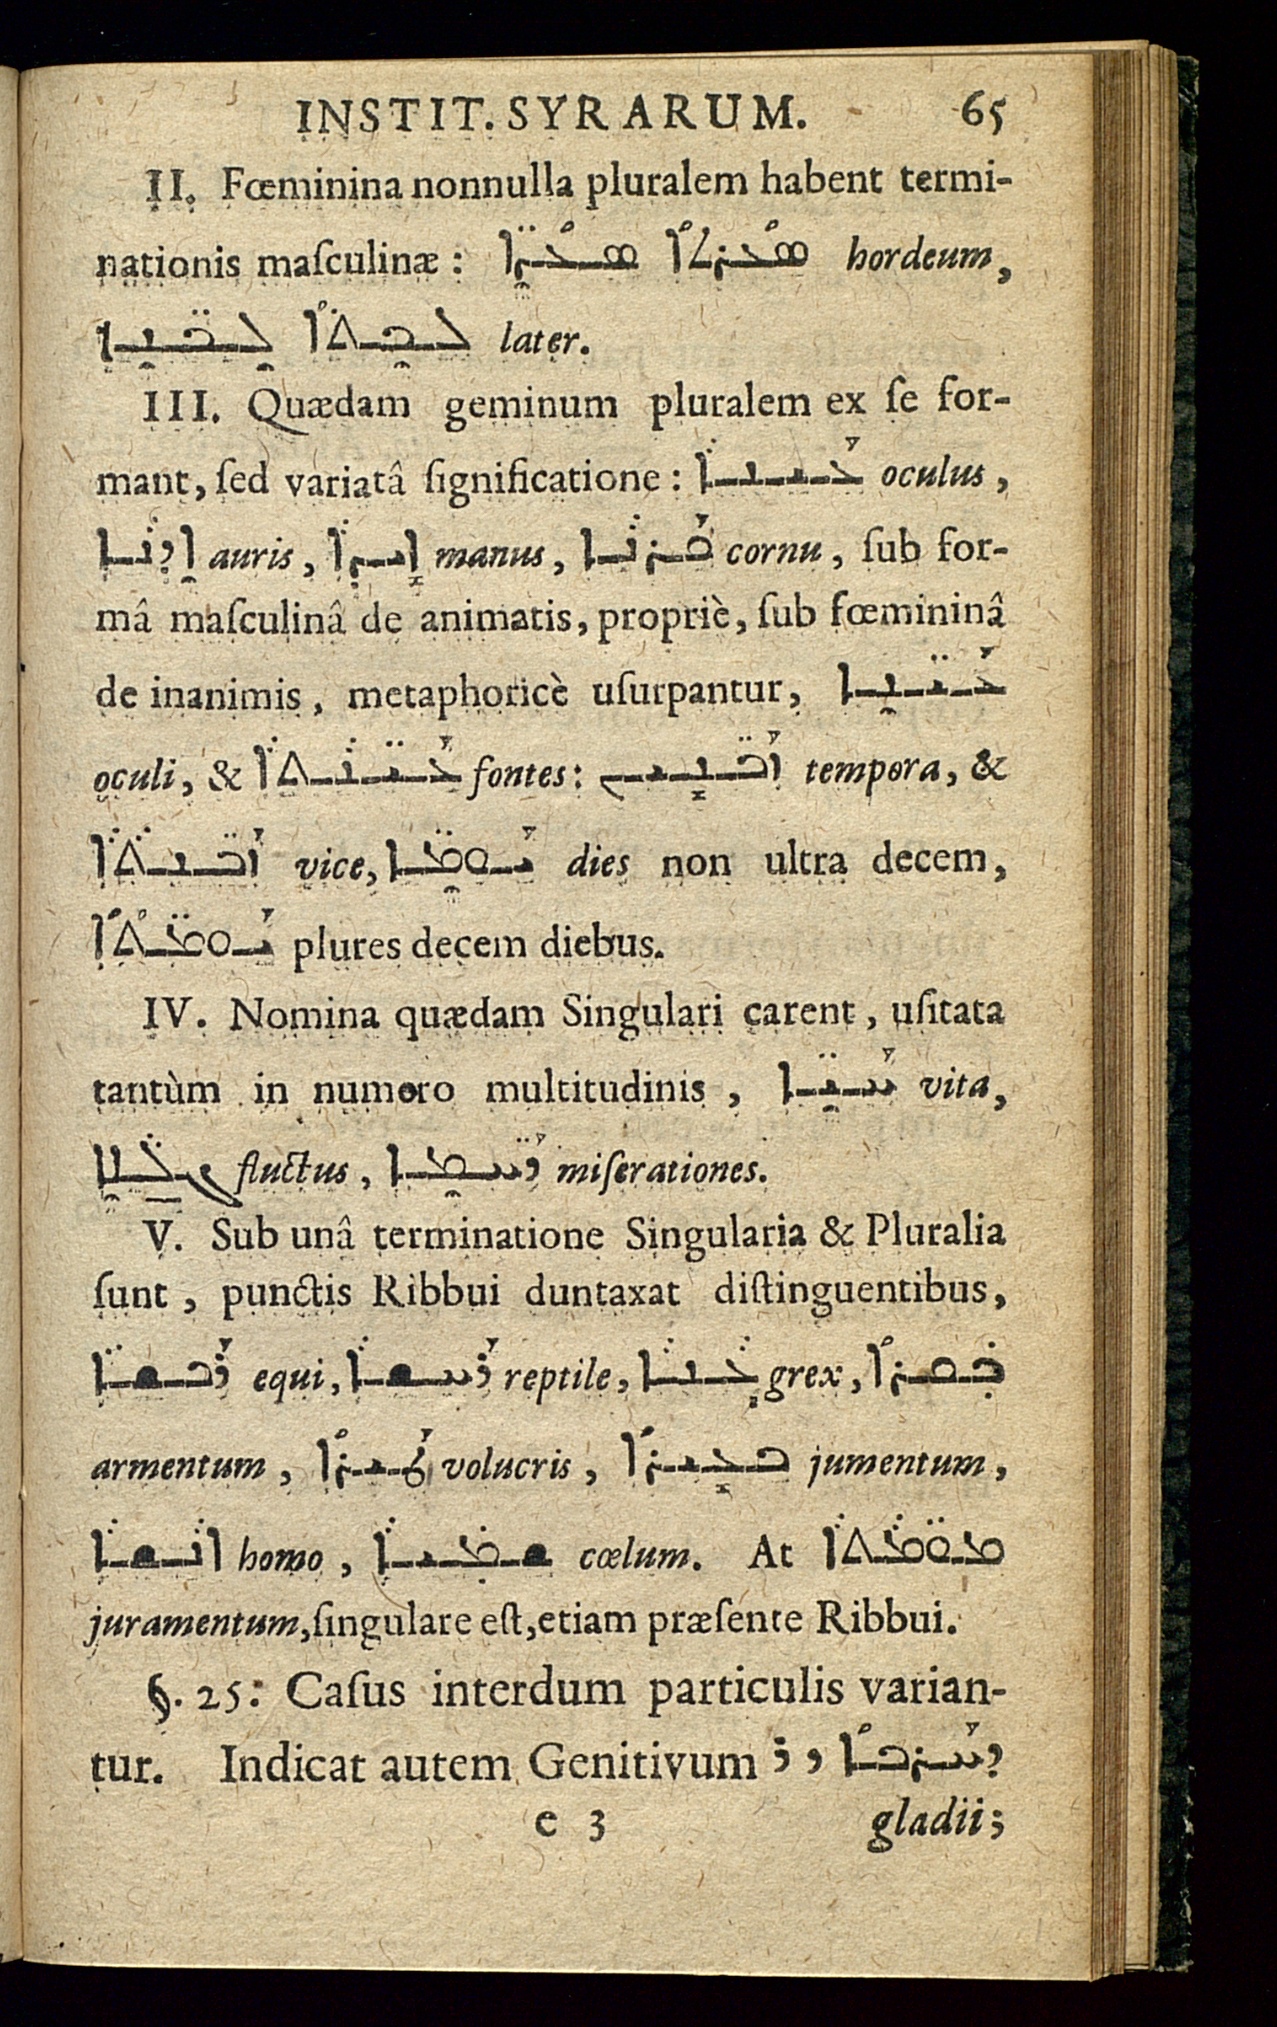 INSTIT. SYRARUM. 65
II. Fœminina nonnulla pluralem habent termi-
nationis maſculinæ: ܣܥܪܬܐ ܣܥܪ̈ܐ hordeum,
ܠܒܢܬܐ later.
III. Quædam geminum pluralem ex ſe for-
mant, ſed variatâ ſignificatione: ܥܝܢܐ oculus,
ܐܕܢܐ auris, ܐܝܕܐ manus, ܩܪܢܐ cornu, ſub for-
mâ maſculinâ de animatis, propriè, ſub fœmininâ
de inanimis, metaphoricè uſurpantur, ܥܝ̈ܢܐ
oculi, & ܥܝ̈ܢܬܐ fontes: ܙܒ̈ܢܝܢ tempora, &
ܙܒ̈ܢܬܐ vice, ܝܘ̈ܡܐ dies non ultra decem,
ܝܘ̈ܡܬܐ plures decem diebus.
IV. Nomina quædam Singulari carent, uſitata
tantùm in numero multitudinis, ܚܝ̈ܐ vita,
fluctus, ܪ̈ܚܡܐ miſerationes.
V. Sub unâ terminatione Singularia & Pluralia
ſunt, punctis Ribbui duntaxat diſtinguentibus,
ܪܟܫ̈ܐ equi, ܪܚܫܐ reptile, ܥܢܐ grex, ܒܩܪܐ
armentum, volucris, ܒܥܝܪܐ jumentum,
ܐܢܫܐ homo, ܫܡܝܐ cœlum. At ܡܘ̈ܡܬܐ
juramentum, ſingulare eſt, etiam præſente Ribbui.
§. 25: Caſus interdum particulis varian-
tur. Indicat autem Genitivum ܕ ܕܚܪܒܐ
e 3 gladii;